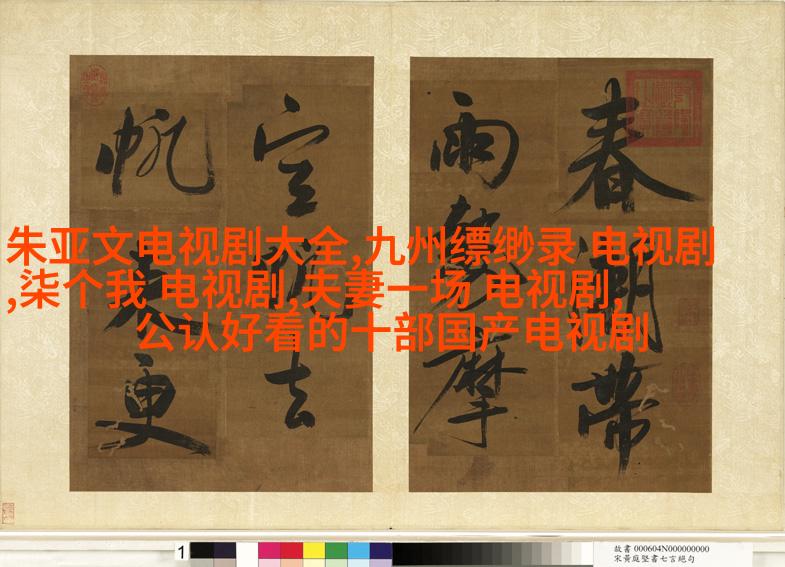 朱亚文电视剧大全,九州缥缈录 电视剧
,柒个我 电视剧,夫妻一场 电视剧,
公认好看的十部国产电视剧
春潮帶
雨勢摩
空去
帆更
1
故書 000604N000000000
宋黃庭堅書七言絕句